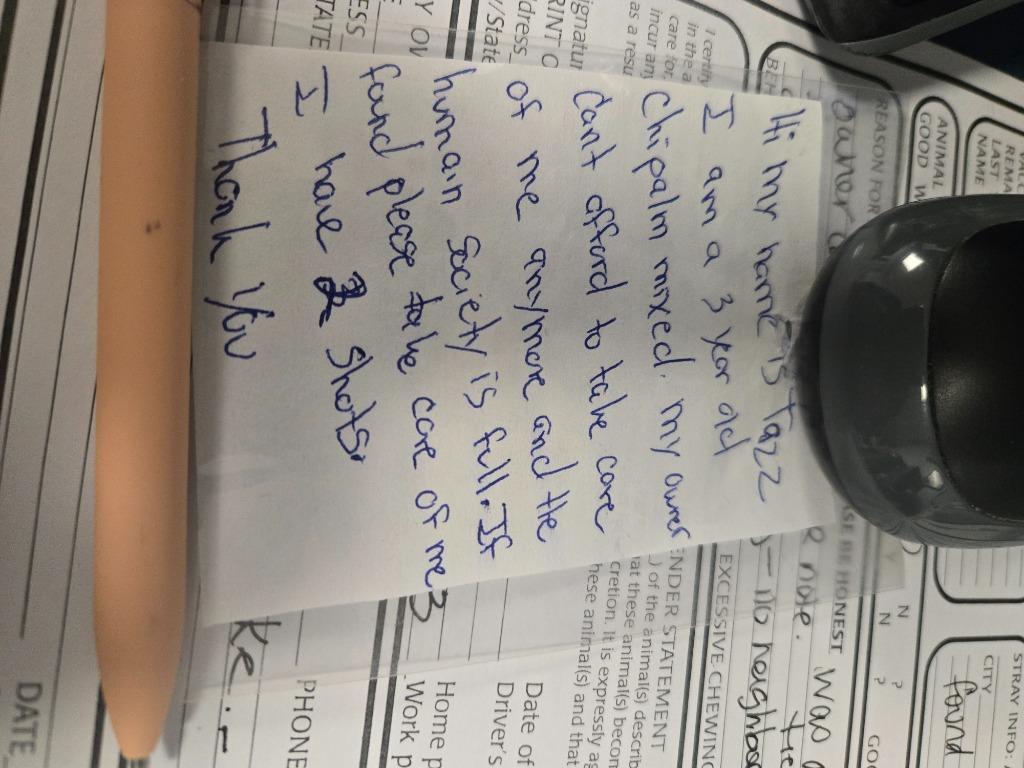 Hi my name is Tazz
I am a 3 year old
Chipalm mixed. my owner
Cant afford to take care
of me anymore and the
humain society is full. If
found please take care of me
I have 2 shots.
Thank You
I certify
in the a
care for,
incur any
as a resu
REASON FOR
BE HONEST
ANIMAL
GOOD W
LAST
NAME
N N
? ?
STRAY INFO:
CITY
found
was
note.
no neighbo
EXCESSIVE CHEWING
NDER STATEMENT
) of the animal(s) describ
at these animal(s) becom
cretion. It is expressly ag
hese animal(s) and that
Date of
Driver's
Home p
Work p
3
PHONE
DATE
ignatur
RINT
dress
y/State
Y OV
ESS
TATE